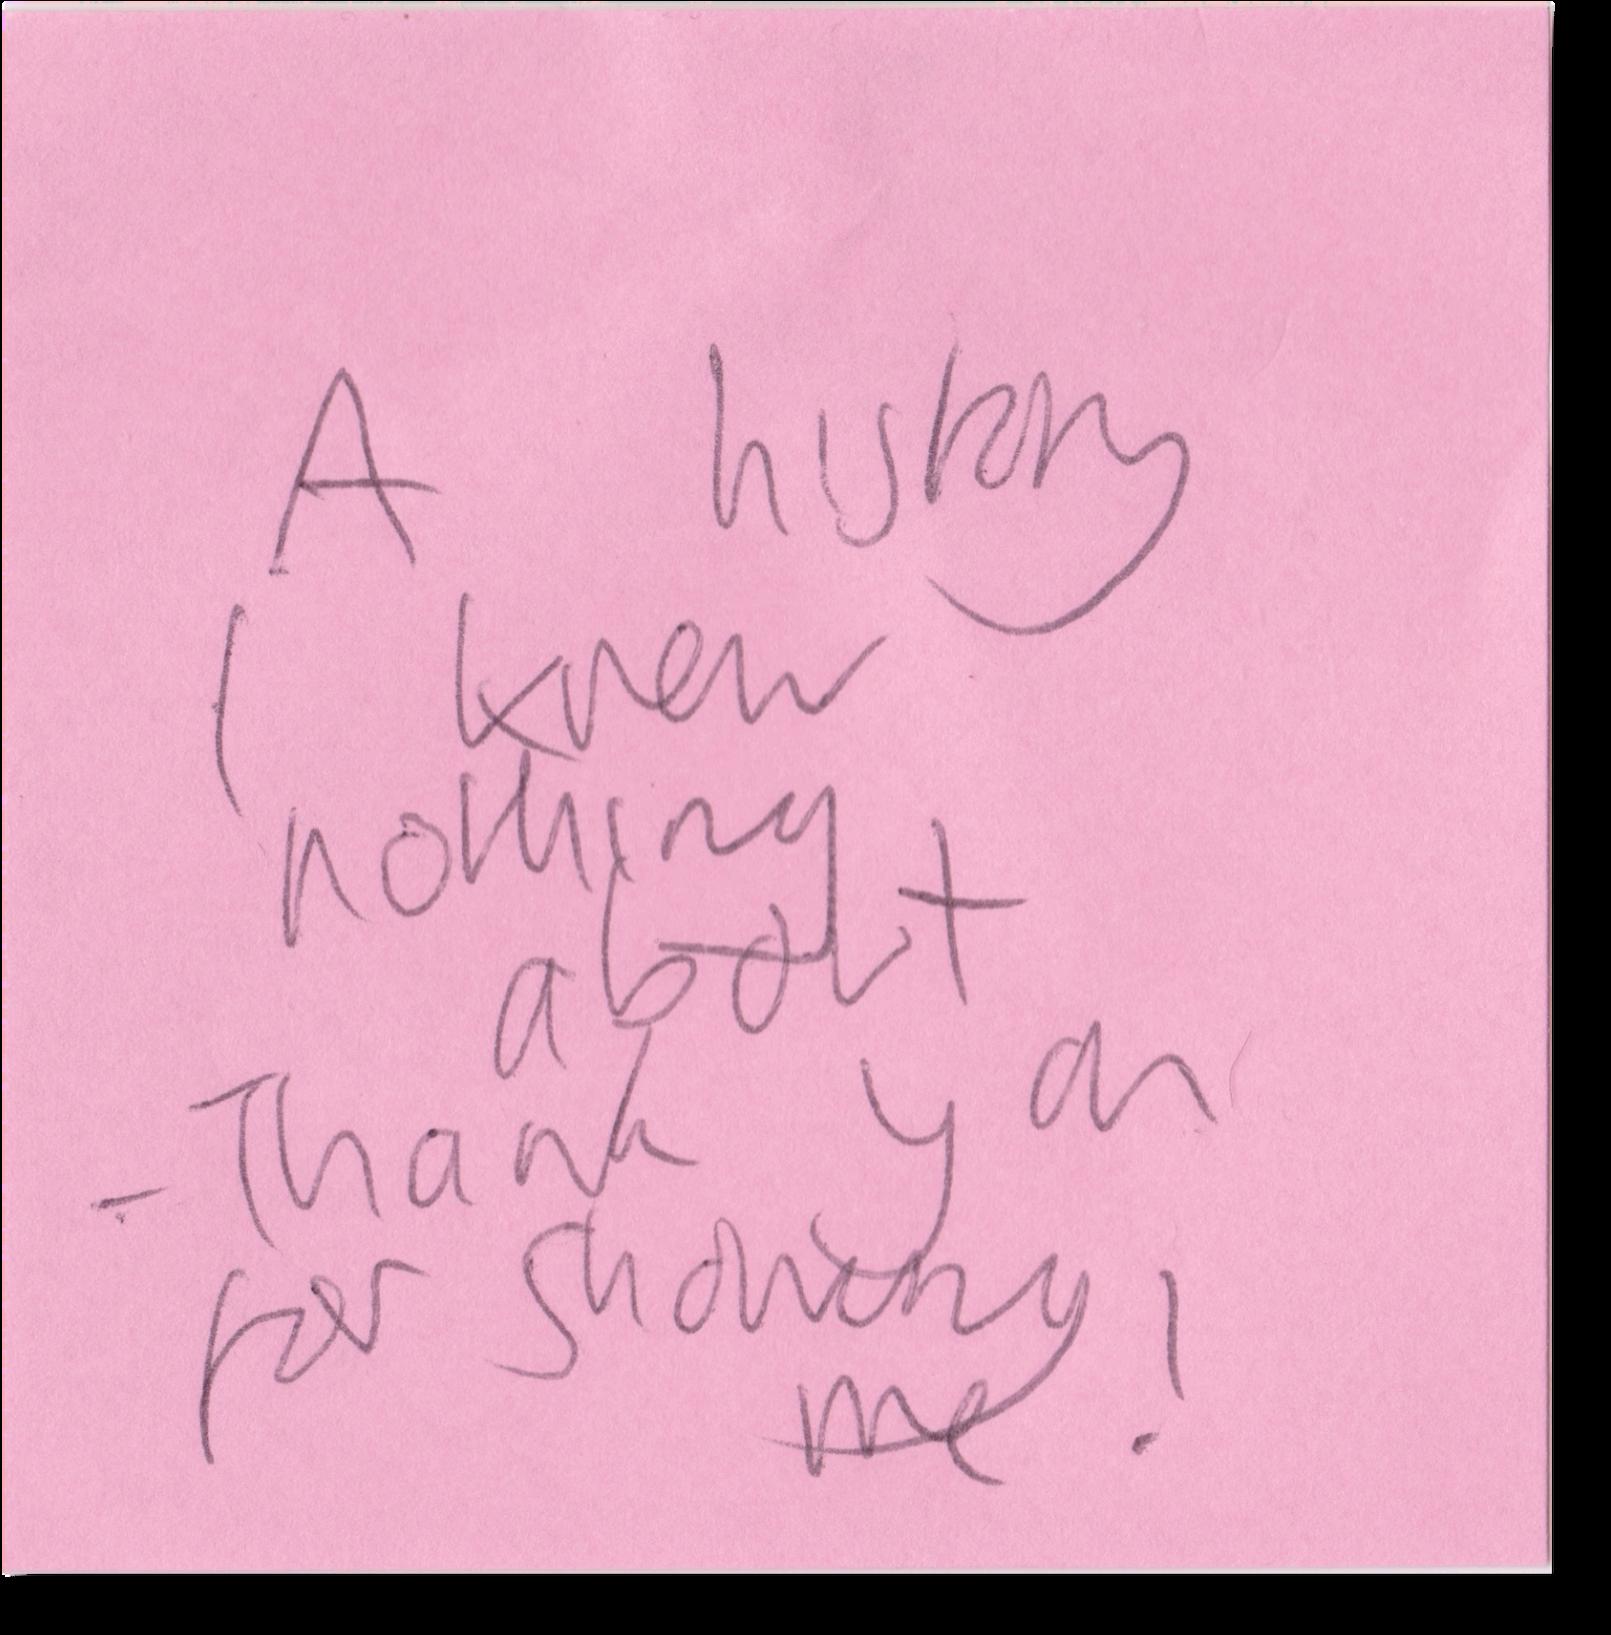 A history
I knew
nothing
about
- Thank you
for showing
me!